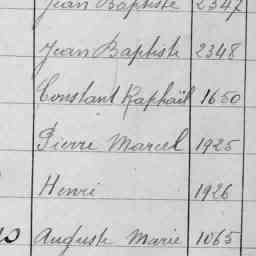 Jean Baptiste 2347
Jean Baptiste 2348
Constant Raphaël 1650
Pierre Marcel 1925
Henri 1926
Auguste Marie 1065